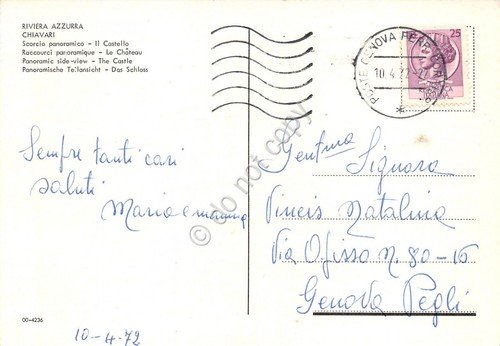 RIVIERA AZZURRA
CHIAVARI
Scorcio panoramico - Il Castello
Raccourci panoramique - Le Château
Panoramic side-view - The Castle
Panoramische Teilansicht - Das Schloss
25
POSTE GENOVA FERROVIA
10.4.72-17
Sempre tanti cari
saluti
Mario e mamma
Gent.ma Signora
Pincis Natalina
Via Ofisso N. 80-16
Genova Pegli
00-4236
10-4-72
do not copy